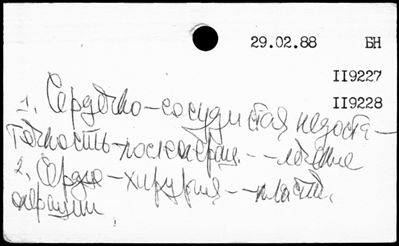 29.02.88 БН
II9227
II9228
1. Сердечно-сосудистая недоста-
точность-послеоперац. - лечение
2. Сердце-хирургия--пластич.
операции